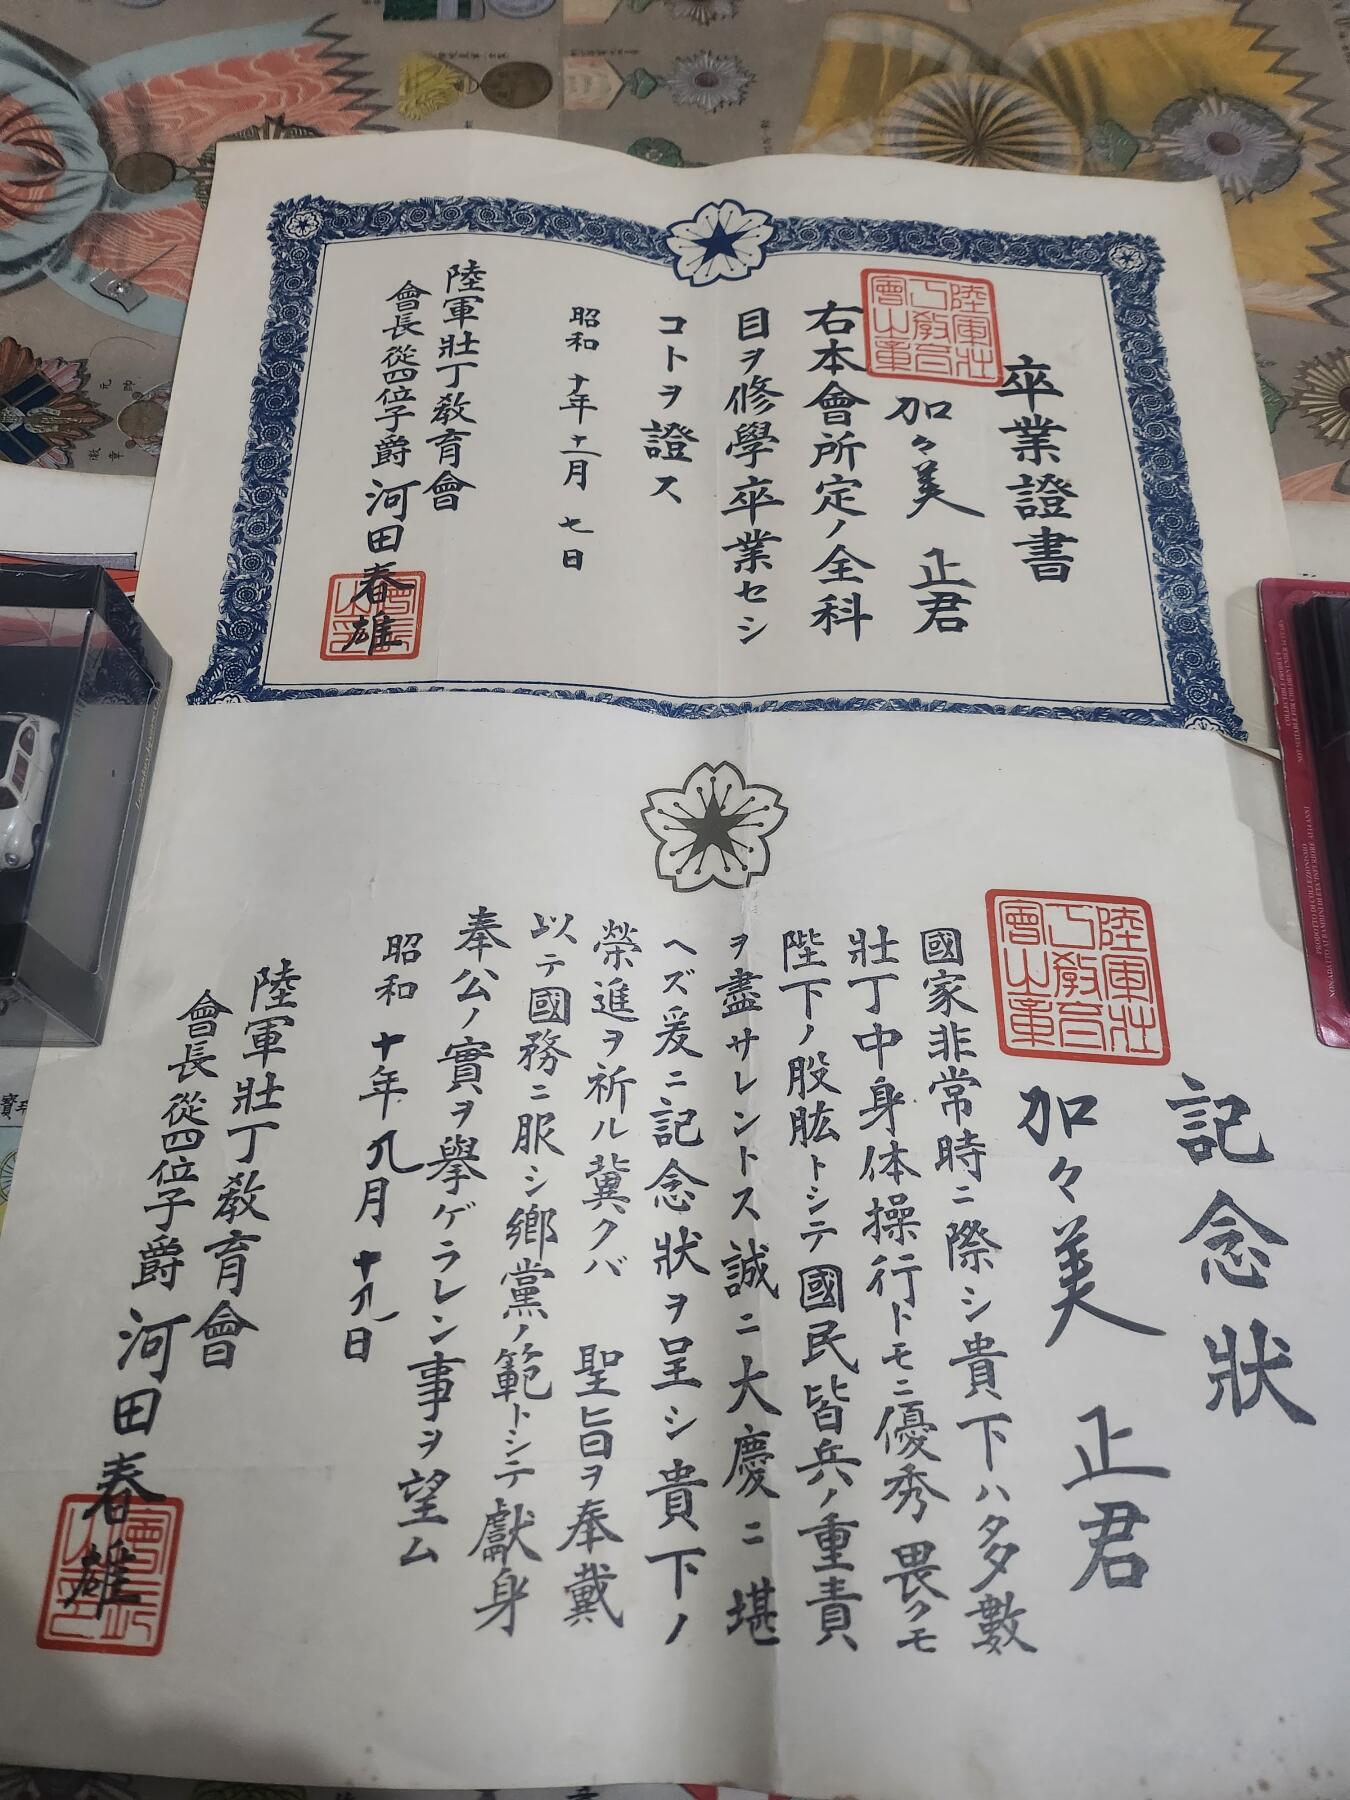 卒業證書
加々美 正君
右本會所定ノ全科
目ヲ修學卒業セシ
コトヲ證ス
昭和十年十一月七日
陸軍壯丁教育會
會長從四位子爵 河田春雄
陸軍壯丁教育會之章
記念狀
加々美 正君
國家非常時ニ際シ貴下ハ多數
壯丁中身体操行トモニ優秀畏クモ
陛下ノ股肱トシテ國民皆兵ノ重責
ヲ盡サレントス誠ニ大慶ニ堪
ヘズ爰ニ記念狀ヲ呈シ貴下ノ
榮進ヲ祈ル冀クバ 聖旨ヲ奉戴
以テ國務ニ服シ鄉黨ノ範トシテ獻身
奉公ノ實ヲ擧ゲラレン事ヲ望ム
昭和十年九月十九日
陸軍壯丁教育會
會長從四位子爵 河田春雄
陸軍壯丁教育會之章
元帥
徽章
COLLECTIBLE PRODUCT
NOT SUITABLE FOR CHILDREN UNDER 14 YEARS
PRODOTTO DI COLLEZIONISMO
NON ADATTO AI BAMBINI DI ETÀ INFERIORE AI 14 ANNI